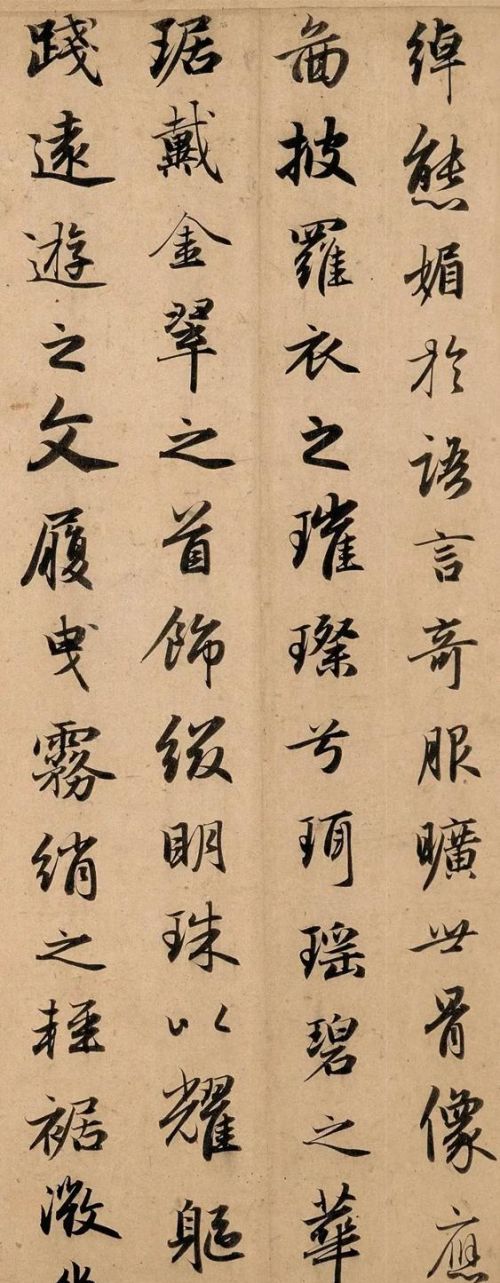 綽態媚於語言奇服曠世骨像應
啚披羅衣之璀璨兮珥瑶碧之華
琚戴金翠之首飾綴明珠以耀軀
踐遠遊之文履曳霧綃之輕裾微